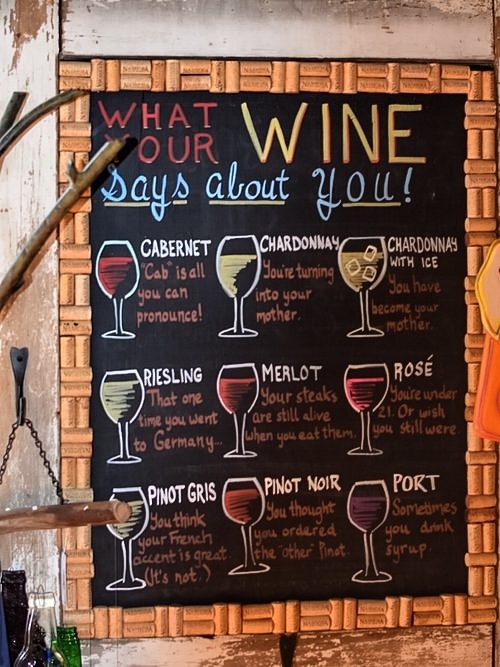 WHAT
YOUR WINE
Says about You!
CABERNET
"Cab" is all
you can
pronounce!
CHARDONNAY
You're turning
into your
mother.
CHARDONNAY
WITH ICE
You have
become your
mother.
RIESLING
That one
time you went
to Germany...
MERLOT
Your steaks
are still alive
when you eat them.
ROSÉ
You're under
21. Or wish
you still were.
PINOT GRIS
You think
your French
accent is great.
(It's not.)
PINOT NOIR
You thought
you ordered
the "other" Pinot.
PORT
Sometimes
you drink
syrup.